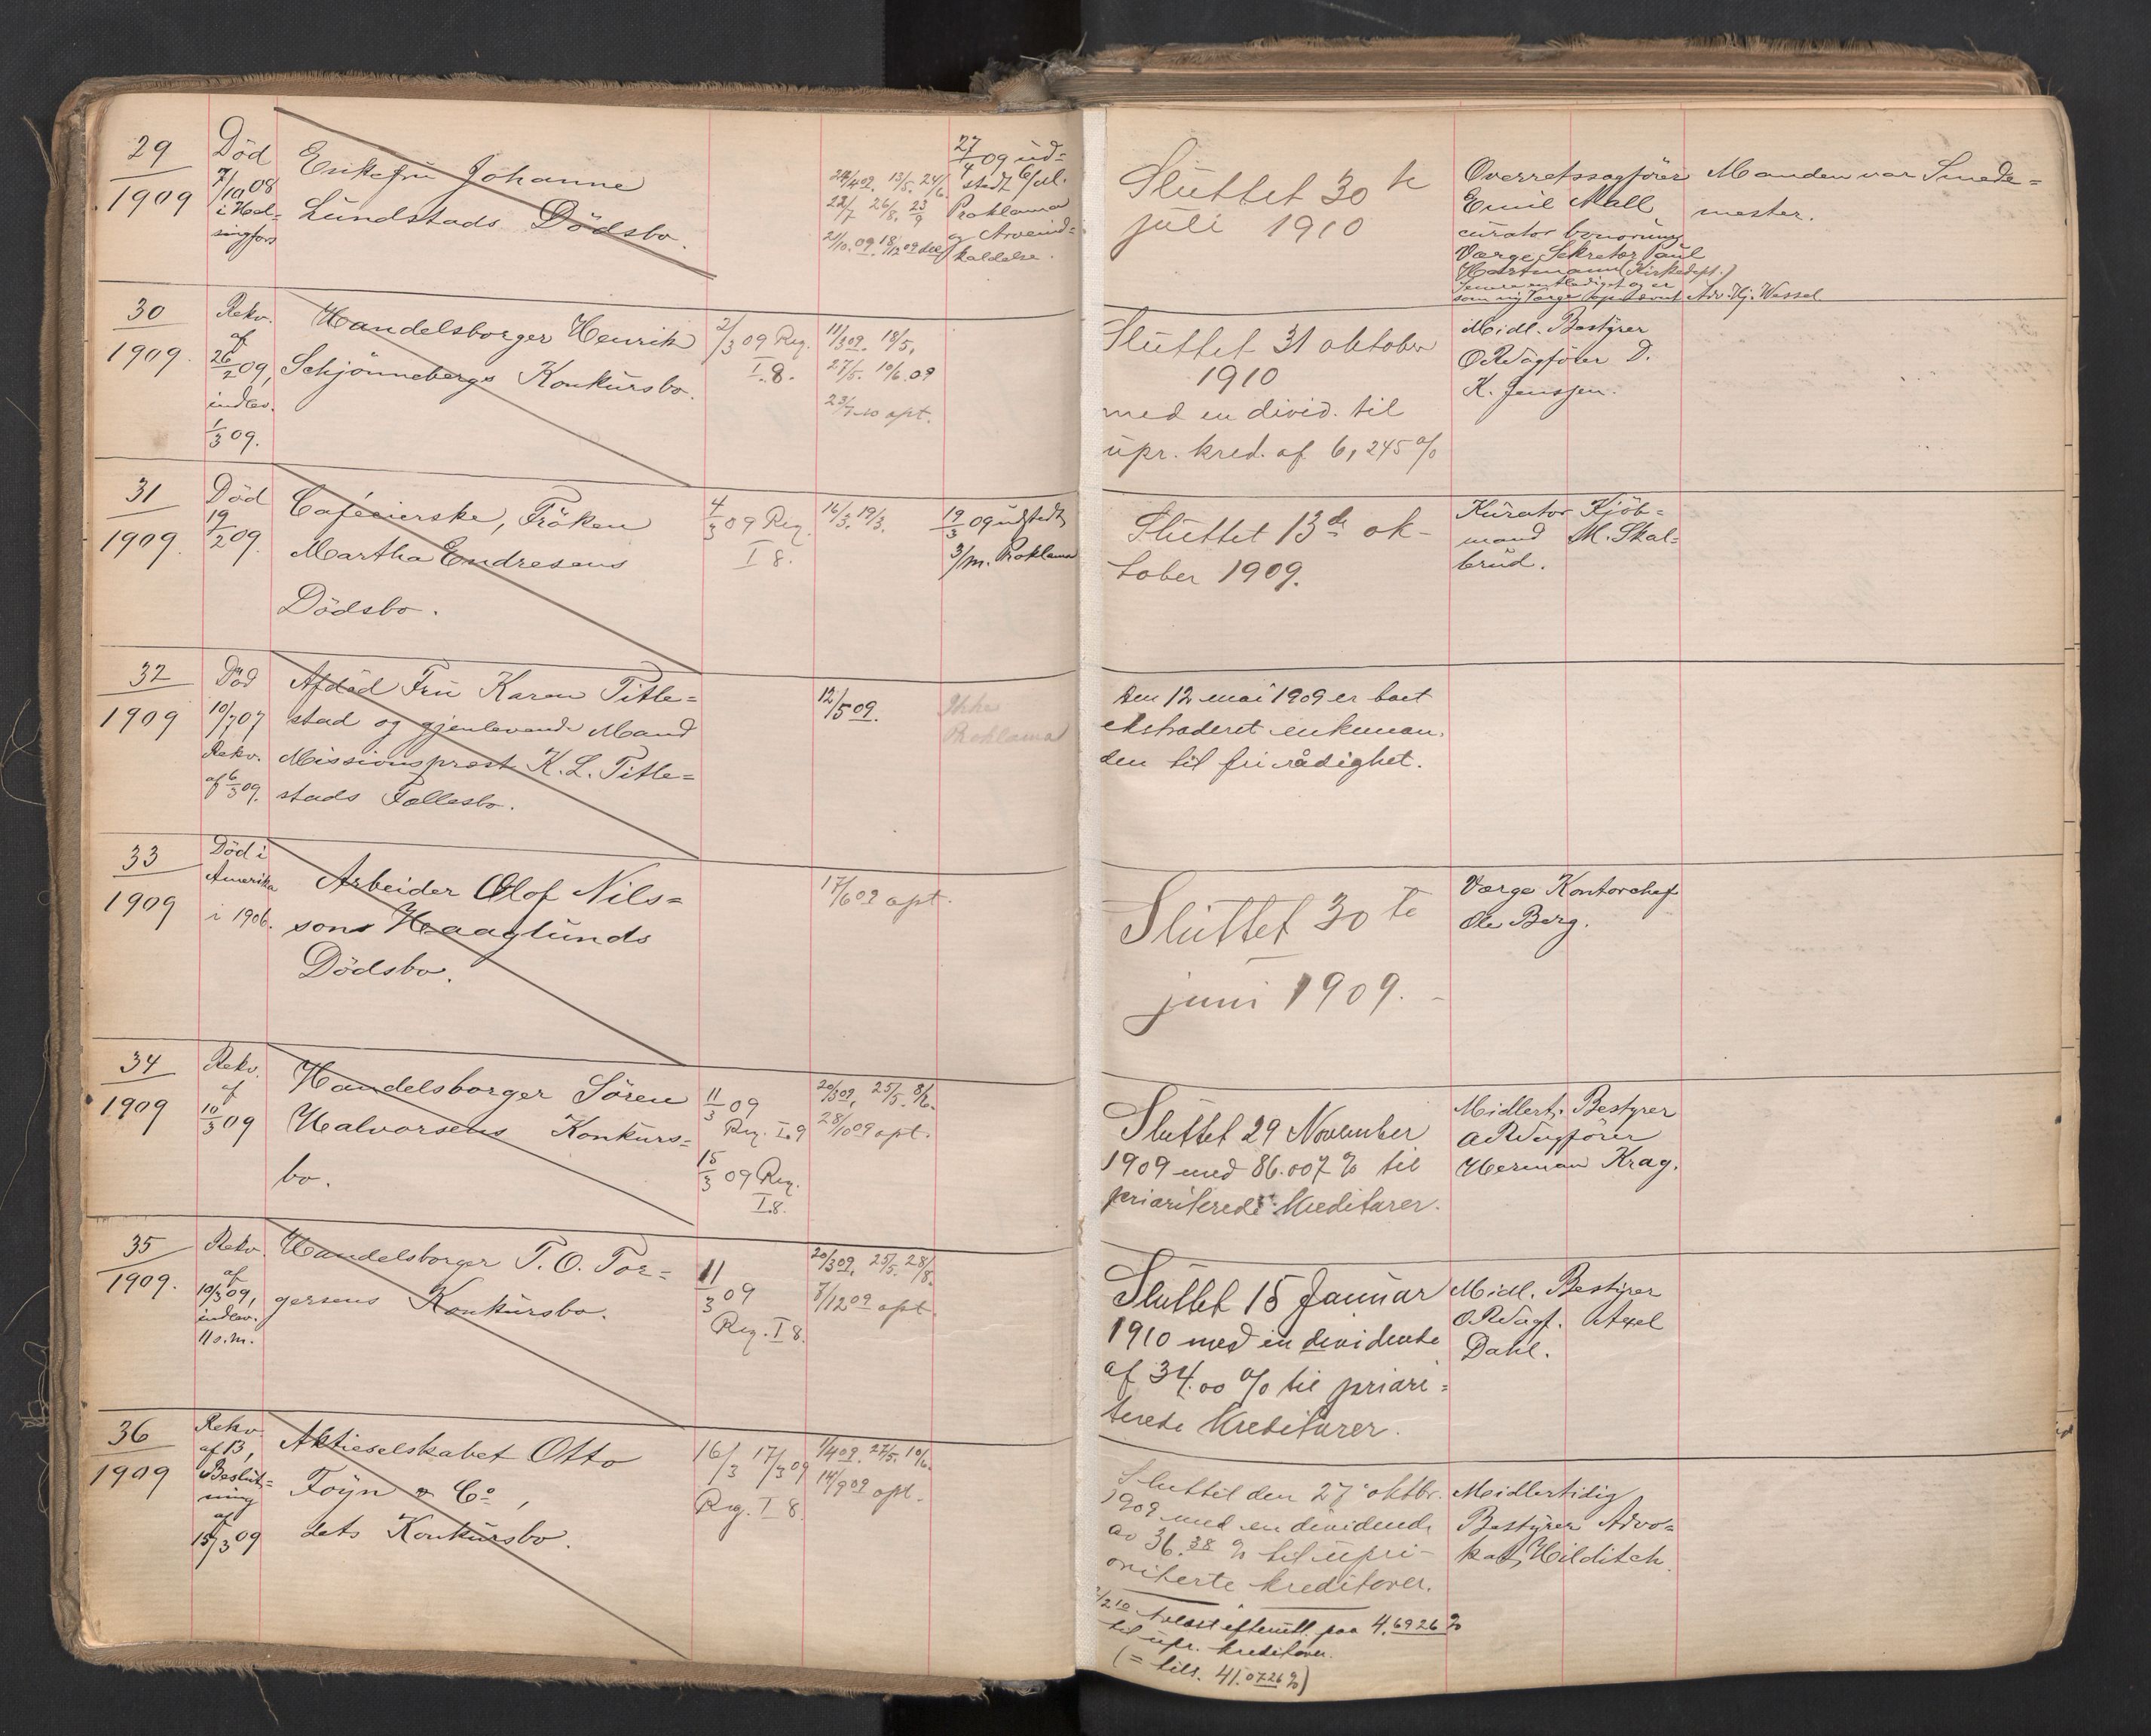 29
1909
Död
7/10 08
i Hel-
singfors
Enkefru Johanne
Lundstads Dödsbo.
27/4 09 ud-
stedt 6/ul.
Proklama
og Arveind-
kaldelse.
Sluttet 30 te
juli 1910
Overretssagförer
Emil Mall
curator bonorum
Værge, Sekretær Paul
Hartmann (Kirkedept.)
som ny Værge opnævnt Adv. Hj. Wessel
Manden var Smede=
mester.
30
1909.
Rekv.
af
26/2 09,
indlev.
1/3 09.
Handelsborger Henrik
Schjönnebergs Konkursbo.
2/3 09 Reg.
I. 8.
11/3 09. 18/5.
27/5. 10/6.09
23/7 10 opt.
Sluttet 31 oktober
1910
med en divid. til
upr. kred. af 6,245 %
Midl. Bestyrer
ORSagförer D.
K. Jenssen.
31
1909.
Död
19/2 09.
Caféeierske, Fröken
Martha Endresens
Dödsbo.
4/3 09 Reg.
I 8.
16/3. 19/3.
19/3 09 udstedt
3/m. Proklama
Sluttet 13de ok-
tober 1909.
Kurator Kjöb=
mand M. Skal=
brud.
32
1909
Död
10/7 07
Rekv.
af 6/3 09.
Afdöd Fru Karen Title=
stad og gjenlevende Mand
Missionsprest K. L. Title=
stads Fællesbo.
12/5 09.
Ikke
Proklama
Den 12 mai 1909 er boet
ekstraderet enkeman.
den til fri rådighet.
33
1909
Död i
Amerika
i 1906.
Arbeider Olof Nils=
sons Haaglunds
Dödsbo.
17/6 09 opt.
Sluttet 30 te
juni 1909.
Værge Kontorchef
Ole Berg.
34
1909
Rekv.
af
10/3 09
Handelsborger Sören
Halvorsens Konkurs=
bo.
11/3 09
Reg. I. 9
15/3 09 Reg.
I. 8.
20/3 09, 25/5. 8/6.
28/10 09 opt.
Sluttet 29 November
1909 med 86.007 % til
prioriterede Kreditorer.
Midlert. Bestyrer
ORSagförer
Herman Krag.
35
1909.
Rekv.
af
10/3 09,
indlev.
11 s.m.
Handelsborger T. O. Tor=
gersens Konkursbo.
11/3 09
Reg. I 8.
20/3 09, 25/5. 28/8.
7/12 09 opt.
Sluttet 15 Januar
1910 med en dividende
af 34.00 % til priori=
terede Kreditorer.
Midl. Bestyrer
O.RSagf. Axel
Dahl.
36
1909
Rekv.
af 13,
Beslut=
ning
af
15/3 09
Aktieselskabet Otto
Föyn & Co,
dets Konkursbo.
16/3 17/3 09
Reg. I 8.
1/4 09. 27/5. 10/6.
14/9 09 opt.
Sluttet den 27 oktbr.
1909 med en dividende
av 36.38 % til upri-
oriterte kreditorer.
efterutl. paa 4.6926 %
til upr. kreditorer.
(= tils. 41.0726 %)
Midlertidig
Bestyrer Advo=
kat Hilditch.